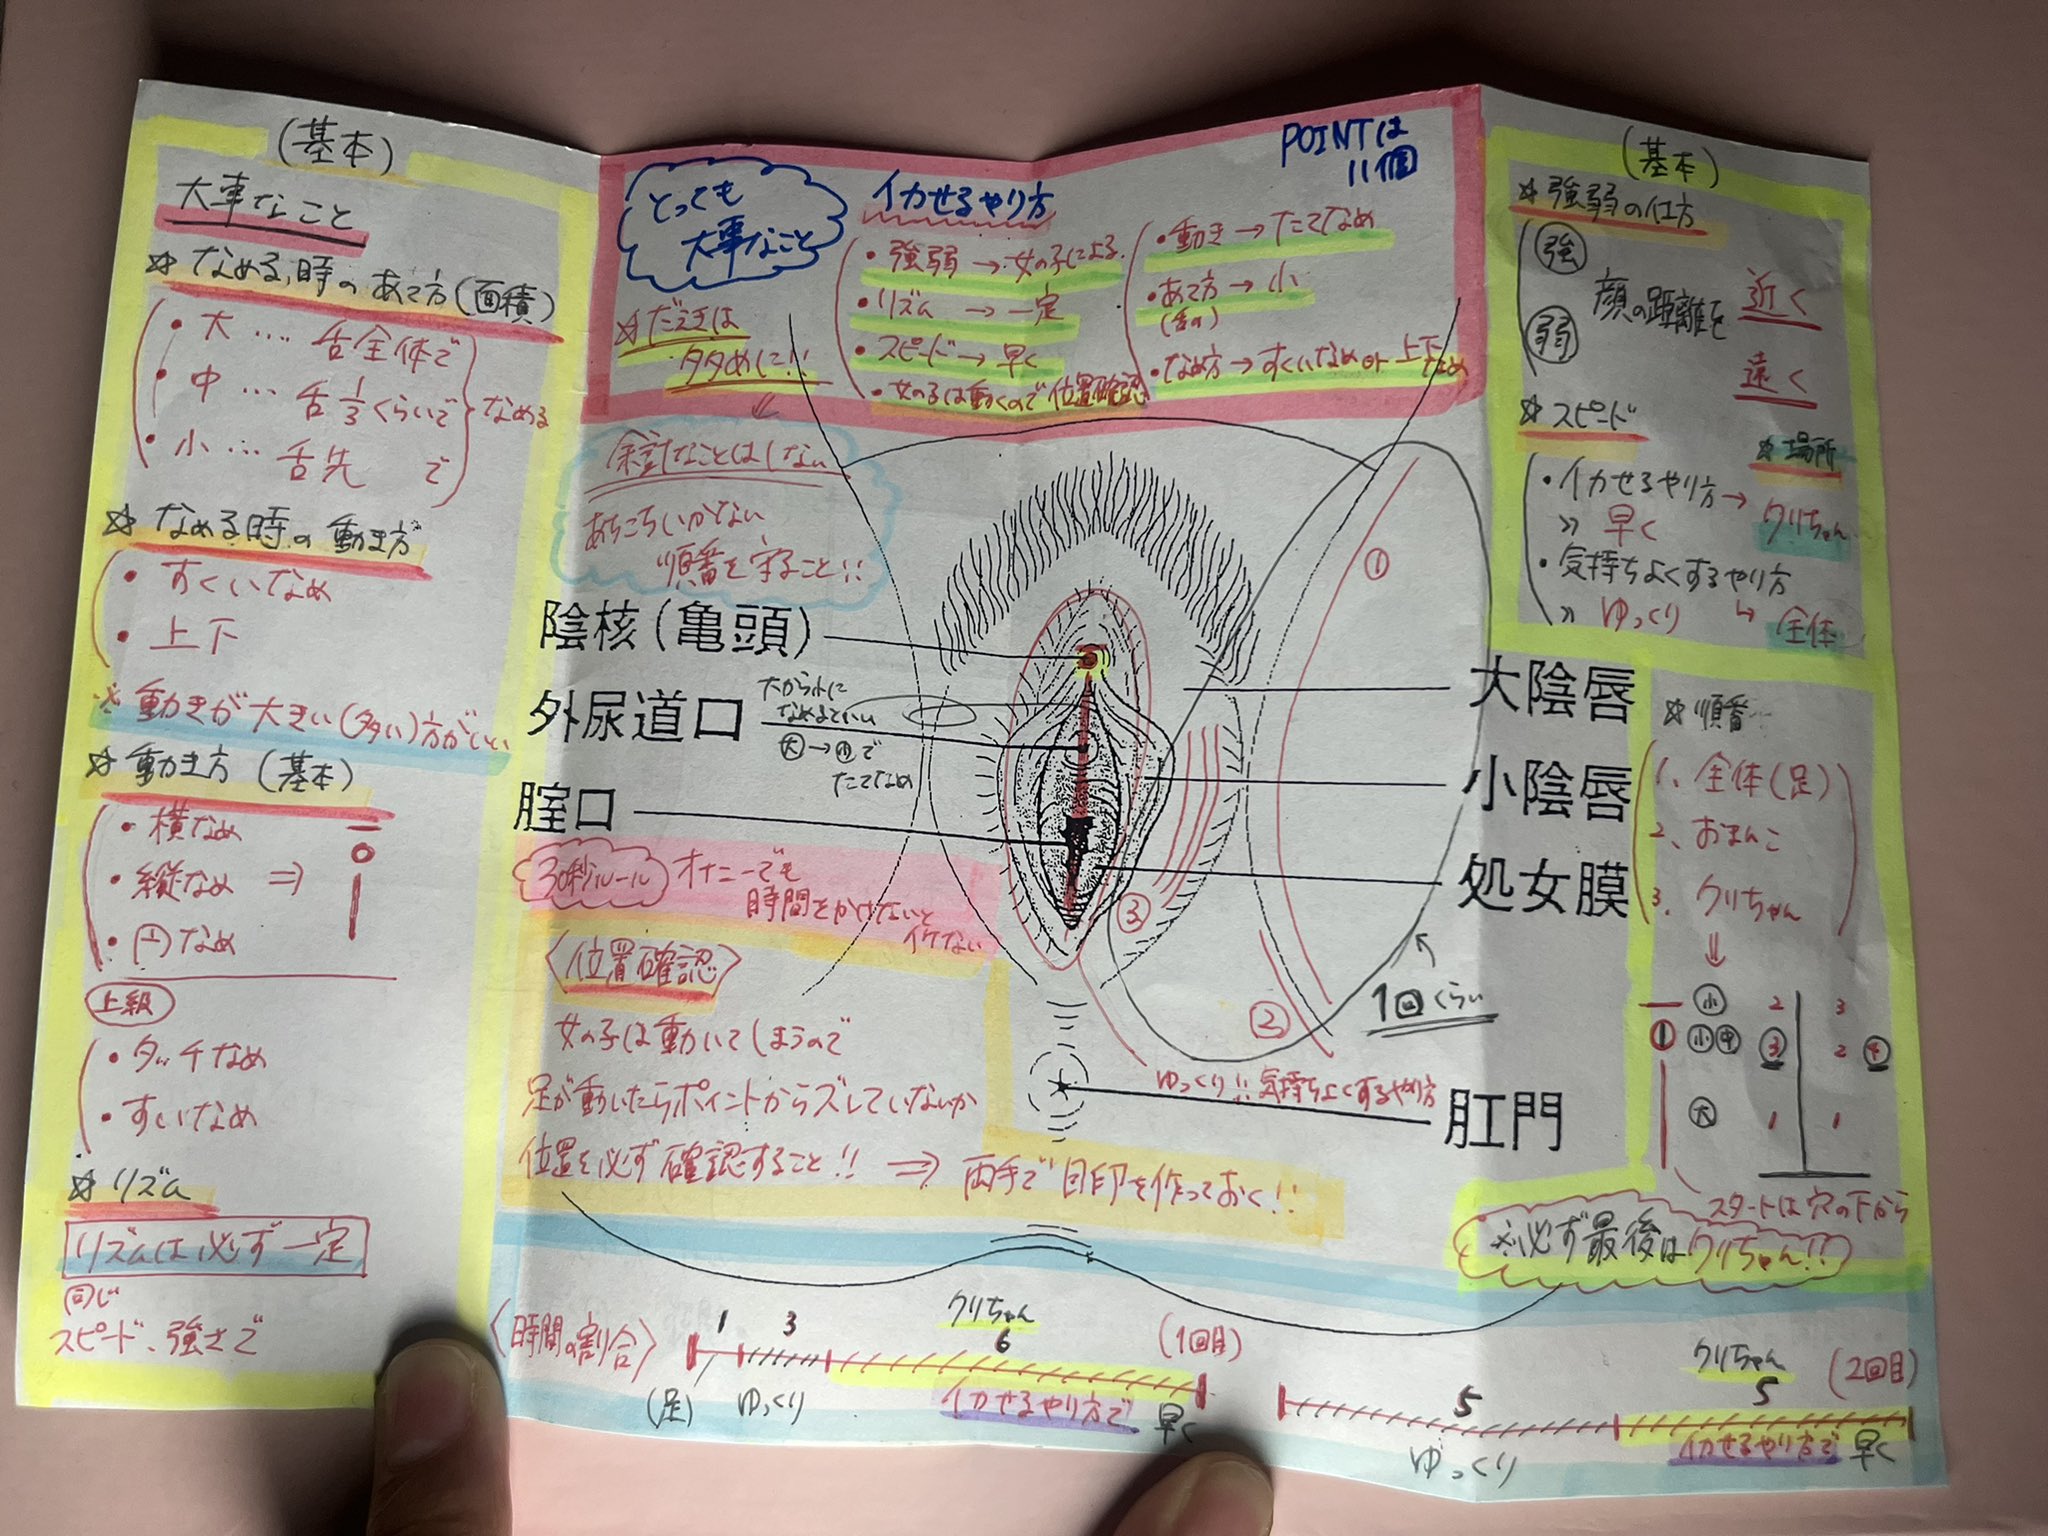 (基本)
大事なこと
☆ なめる時のあて方(面積)
・大 … 舌全体で
・中 … 舌1/3くらいで
・小 … 舌先 で
なめる
☆ なめる時の動き方
・すくいなめ
・上下
※動きが大きい(多い)方がいい
☆ 動き方 (基本)
・横なめ
・縦なめ ⇒
・円なめ
上級
・タッチなめ
・すいなめ
☆ リズム
リズムは必ず一定
同じ
スピード、強さで
とっても
大事なこと
イカせるやり方
POINTは
11個
☆だえきは
多めに!!
・強弱 → 女の子による
・リズム → 一定
・スピード → 早く
・女の子は動くので位置確認
・動き → たてなめ
・あて方 → 小
(舌の)
・なめ方 → すくいなめ or 上下なめ
余計なことはしない
あちこちいかない
順番を守ること!!
陰核(亀頭)
外尿道口
大から小に
なめるといい
大→小で
たてなめ
腟口
大陰唇
小陰唇
処女膜
肛門
①
②
③
1回くらい
ゆっくり!! 気持ちよくするやり方
30秒ルール
オナニーでも
時間をかけないと
イケない
〈位置確認〉
女の子は動いてしまうので
足が動いたらポイントからズレていないか
位置を必ず確認すること!! ⇒ 両手で目印を作っておく!!
(基本)
☆強弱の仕方
強
弱
顔の距離を
近く
遠く
☆ スピード
☆場所
・イカせるやり方→クリちゃん
» 早く
・気持ちよくするやり方
» ゆっくり ↳ 全体
☆順番
1、全体(足)
2、おまんこ
3、クリちゃん
⇓
小 2 3
小 中 ③ 2 ④
大 1 1
スタートは穴の下から
※必ず最後はクリちゃん!!
〈時間の割合〉
1 3 クリちゃん 6 (1回目)
(足) ゆっくり イカせるやり方で 早く
5 クリちゃん 5 (2回目)
ゆっくり イカせるやり方で 早く